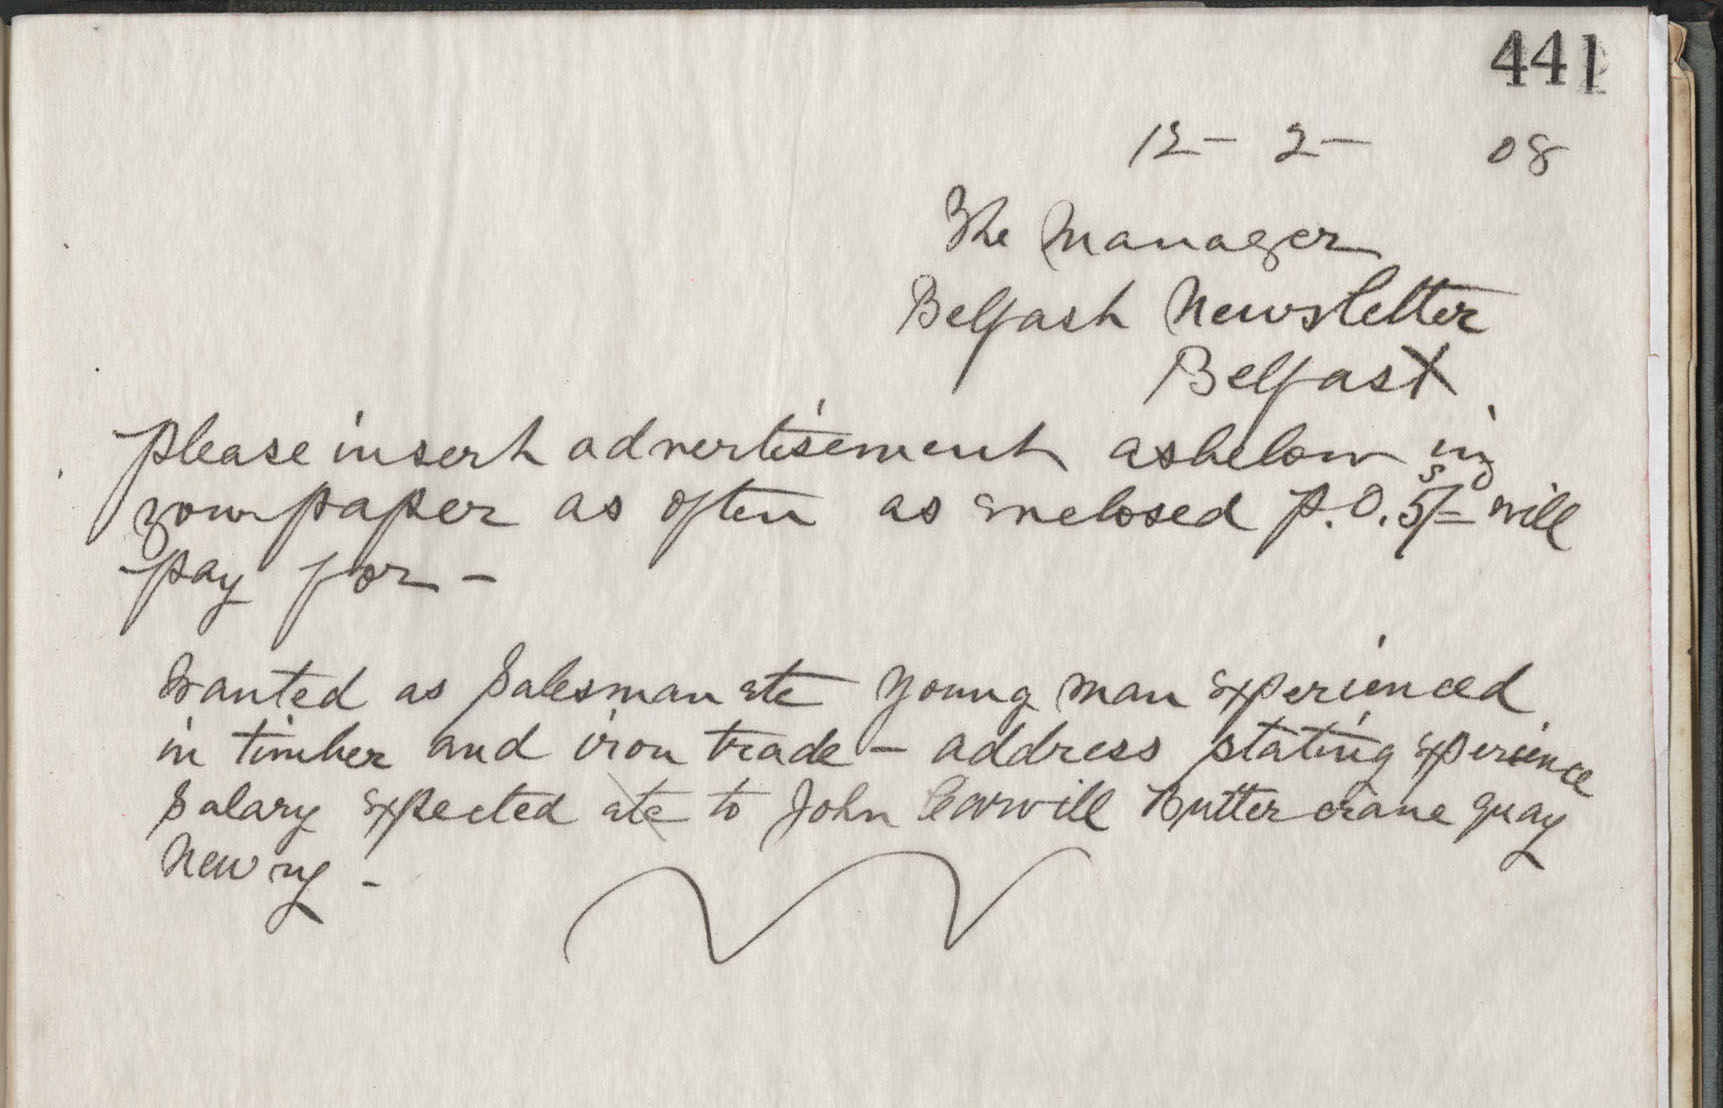 441
12 - 2 - 08
The Manager
Belfast Newsletter
Belfast
please insert advertisement as below in
your paper as often as enclosed p.O. 5s/= will
pay for -
Wanted as Salesman etc young man experienced
in timber and iron trade - address stating experience
Salary expected etc to John Carvill Buttercrane quay
Newry -